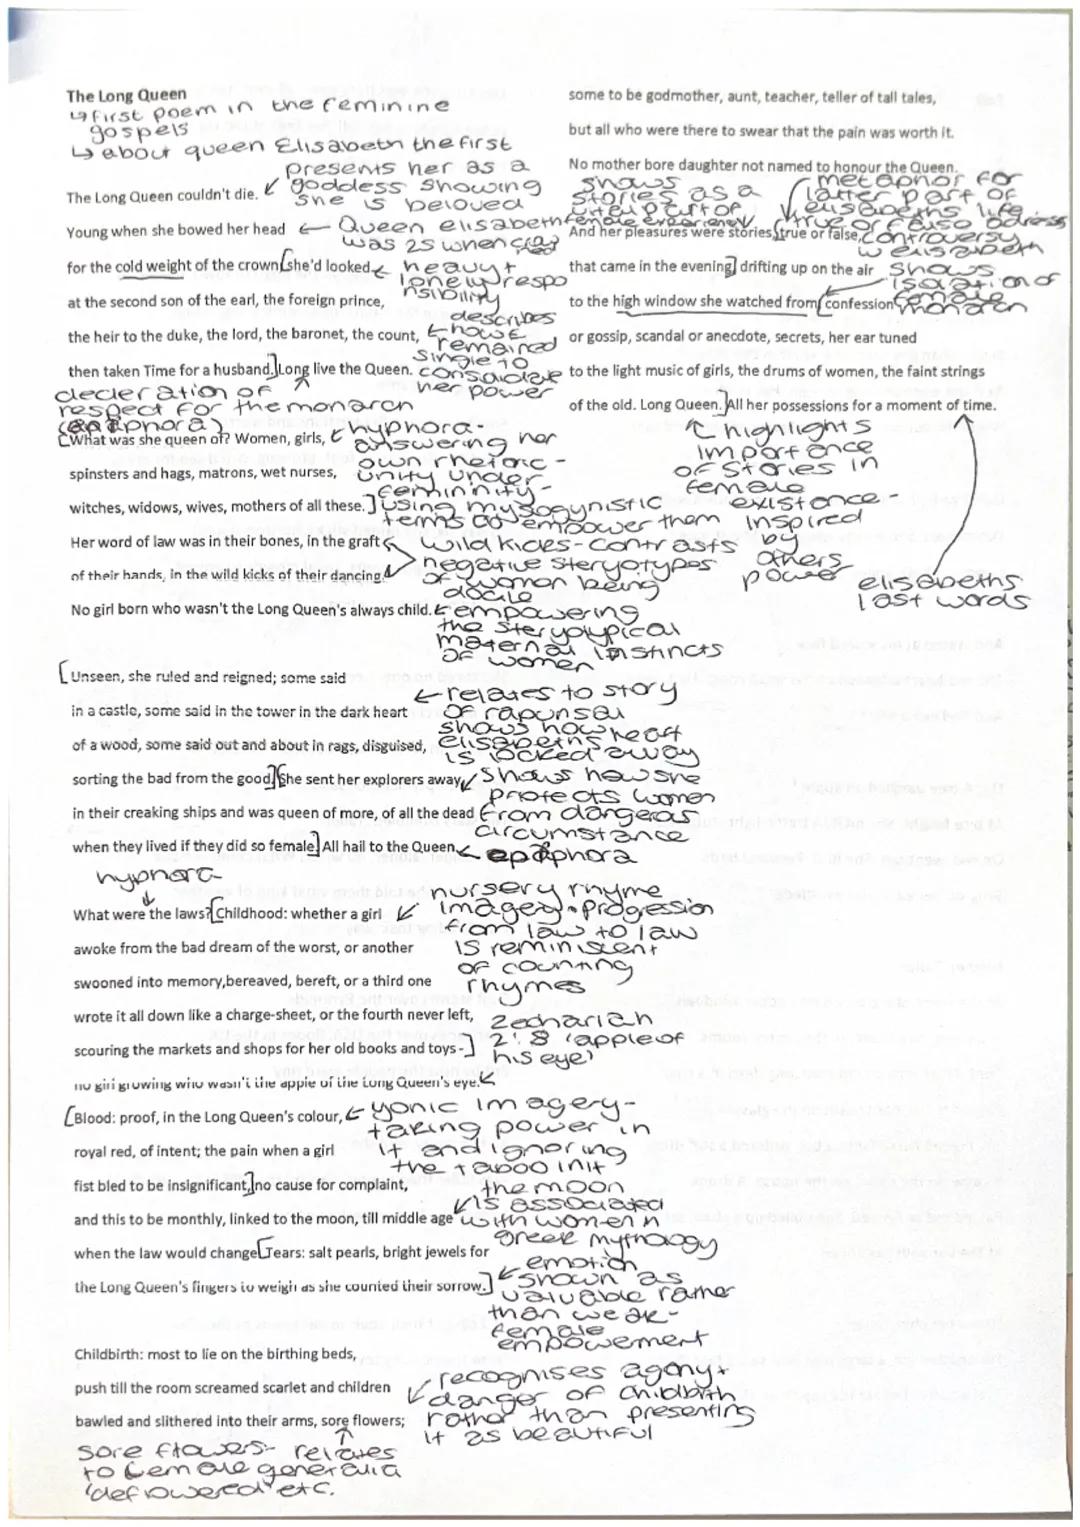 The Long Queen
↳ first poem in the feminine
gospels
↳ about queen Elisabeth the first
presents her as a
goddess showing
she is beloved
The Long Queen couldn't die.
Young when she bowed her head
← Queen elisabeth
was 25 when
for the cold weight of the crown, she'd looked
heavy +
lonely respo
nsibility
at the second son of the earl, the foreign prince,
describes
how E
remained
single to
her power
the heir to the duke, the lord, the baronet, the count,
then taken Time for a husband. Long live the Queen.
decleration of
respect for the monarch
What was she queen of? Women, girls,
hyphora-
answering her
own rhetoric -
unity under
femininity-
spinsters and hags, matrons, wet nurses,
witches, widows, wives, mothers of all these.
using mysogynistic
terms to empower them
Her word of law was in their bones, in the graft
wild kicks - contrasts
negative steryotypes
of woman being
docile
of their hands, in the wild kicks of their dancing.
No girl born who wasn't the Long Queen's always child.
empowering
the steryotypical
maternal instincts
of women
Unseen, she ruled and reigned; some said
← relates to story
of rapunsal
shows how
elisabeths heart
is locked away
in a castle, some said in the tower in the dark heart
of a wood, some said out and about in rags, disguised,
sorting the bad from the good. She sent her explorers away
shows how she
protects women
from dangeros
circumstance
in their creaking ships and was queen of more, of all the dead
when they lived if they did so female. All hail to the Queen.
epiphora
hyphora
What were the laws? Childhood: whether a girl
nursery rhyme
imagery - progression
from law to law
is reminiscent
of counting
rhymes
awoke from the bad dream of the worst, or another
swooned into memory, bereaved, bereft, or a third one
wrote it all down like a charge-sheet, or the fourth never left,
scouring the markets and shops for her old books and toys -
zechariah
2:8 'apple of
his eye'
no girl growing who wasn't the apple of the Long Queen's eye.
Blood: proof, in the Long Queen's colour,
← yonic imagery-
taking power in
it and ignoring
the taboo in it
royal red, of intent; the pain when a girl
fist bled to be insignificant, no cause for complaint,
the moon
is associated
with women in
greek mythology
and this to be monthly, linked to the moon, till middle age
when the law would change. Tears: salt pearls, bright jewels for
emotion
shown as
valuable rather
than weak -
female
empowerment
the Long Queen's fingers to weigh as she counted their sorrow.
Childbirth: most to lie on the birthing beds,
push till the room screamed scarlet and children
recognises agony +
danger of childbirth
rather than presenting
it as beautiful
bawled and slithered into their arms, sore flowers;
sore flowers - relates
to female generalia
'deflowered' etc.
some to be godmother, aunt, teacher, teller of tall tales,
but all who were there to swear that the pain was worth it.
No mother bore daughter not named to honour the Queen.
shows
stories as a
vital part of
female experience
metaphor for
latter part of
elisabeths life
And her pleasures were stories, true or false,
controversy
w elisabeth
that came in the evening, drifting up on the air
shows
isolation of
female
monarch
to the high window she watched from, confession
or gossip, scandal or anecdote, secrets, her ear tuned
to the light music of girls, the drums of women, the faint strings
of the old. Long Queen. All her possessions for a moment of time.
highlights
importance
of stories in
female
existence -
inspired
by
others
power
elisabeths
last words